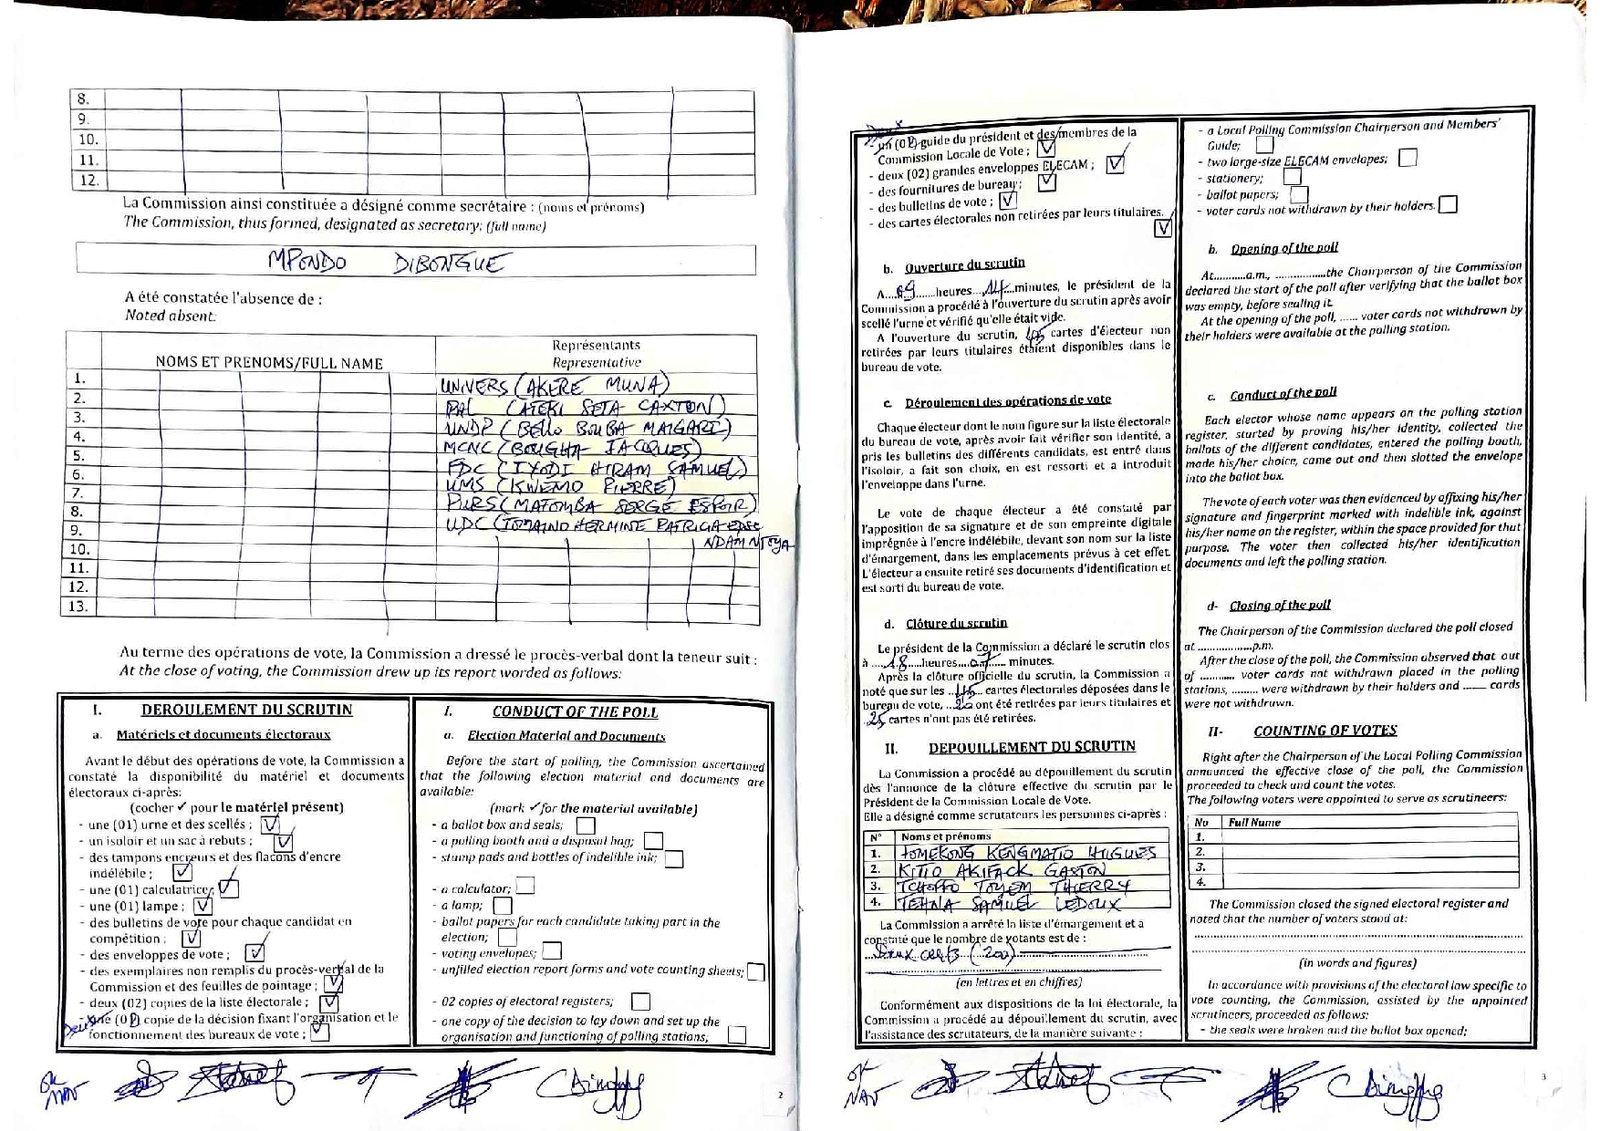 8.
9.
10.
11.
12.
La Commission ainsi constituée a désigné comme secrétaire : (noms et prénoms)
The Commission, thus formed, designated as secretary: (full name)
MPONDO DIBONGUE
A été constatée l'absence de :
Noted absent:
NOMS ET PRENOMS/FULL NAME
Représentants
Representative
1. UNIVERS (AKERE MUNA)
2. PAL (ATEKI SETA CAXTON)
3. UNDP (BELLO BOUBA MAIGARI)
4. MCNC (BOUGHA JACQUES)
5. FDC (IYODI HIRAM SAMUEL)
6. UMS (KWEMO PIERRE)
7. PURS (MATOMBA SERGE ESPOIR)
8. UDC (TOMAINO HERMINE PATRICIA epse
9. NDAM NJOYA
10.
11.
12.
13.
Au terme des opérations de vote, la Commission a dressé le procès-verbal dont la teneur suit :
At the close of voting, the Commission drew up its report worded as follows:
I. DEROULEMENT DU SCRUTIN
a. Matériels et documents électoraux
Avant le début des opérations de vote, la Commission a
constaté la disponibilité du matériel et documents
électoraux ci-après:
(cocher ✓ pour le matériel présent)
- une (01) urne et des scellés ;
- un isoloir et un sac à rebuts ;
- des tampons encreurs et des flacons d'encre
indélébile ;
- une (01) calculatrice;
- une (01) lampe ;
- des bulletins de vote pour chaque candidat en
compétition ;
- des enveloppes de vote ;
- des exemplaires non remplis du procès-verbal de la
Commission et des feuilles de pointage ;
- deux (02) copies de la liste électorale ;
- une (02) copie de la décision fixant l'organisation et le
fonctionnement des bureaux de vote ;
I. CONDUCT OF THE POLL
a. Election Material and Documents
Before the start of polling, the Commission ascertained
that the following election material and documents are
available:
(mark ✓ for the material available)
- a ballot box and seals;
- a polling booth and a disposal bag;
- stamp pads and bottles of indelible ink;
- a calculator;
- a lamp;
- ballot papers for each candidate taking part in the
election;
- voting envelopes;
- unfilled election report forms and vote counting sheets;
- 02 copies of electoral registers;
- one copy of the decision to lay down and set up the
organisation and functioning of polling stations,
2
Deux
- un (02) guide du président et des membres de la
Commission Locale de Vote ;
- deux (02) grandes enveloppes ELECAM ;
- des fournitures de bureau ;
- des bulletins de vote ;
- des cartes électorales non retirées par leurs titulaires.
b. Ouverture du scrutin
A....09......heures....14....minutes, le président de la
Commission a procédé à l'ouverture du scrutin après avoir
scellé l'urne et vérifié qu'elle était vide.
A l'ouverture du scrutin, 45 cartes d'électeur non
retirées par leurs titulaires étaient disponibles dans le
bureau de vote.
c. Déroulement des opérations de vote
Chaque électeur dont le nom figure sur la liste électorale
du bureau de vote, après avoir fait vérifier son identité, a
pris les bulletins des différents candidats, est entré dans
l'isoloir, a fait son choix, en est ressorti et a introduit
l'enveloppe dans l'urne.
Le vote de chaque électeur a été constaté par
l'apposition de sa signature et de son empreinte digitale
imprégnée à l'encre indélébile, devant son nom sur la liste
d'émargement, dans les emplacements prévus à cet effet.
L'électeur a ensuite retiré ses documents d'identification et
est sorti du bureau de vote.
d. Clôture du scrutin
Le président de la Commission a déclaré le scrutin clos
à ....18....heures....07.... minutes.
Après la clôture officielle du scrutin, la Commission a
noté que sur les ..45.. cartes électorales déposées dans le
bureau de vote, ..20 ont été retirées par leurs titulaires et
25 cartes n'ont pas été retirées.
II. DEPOUILLEMENT DU SCRUTIN
La Commission a procédé au dépouillement du scrutin
dès l'annonce de la clôture effective du scrutin par le
Président de la Commission Locale de Vote.
Elle a désigné comme scrutateurs les personnes ci-après :
N° Noms et prénoms
1. TOMEKONG KENGMATIO HUGUES
2. KITIO AKIFACK GASTON
3. TCHOFFO TOUEM THIERRY
4. TEHNA SAMUEL LEDOUX
La Commission a arrêté la liste d'émargement et a
constaté que le nombre de votants est de :
Deux cents (200)
(en lettres et en chiffres)
Conformément aux dispositions de la loi électorale, la
Commission a procédé au dépouillement du scrutin, avec
l'assistance des scrutateurs, de la manière suivante :
- a Local Polling Commission Chairperson and Members'
Guide;
- two large-size ELECAM envelopes;
- stationery;
- ballot papers;
- voter cards not withdrawn by their holders.
b. Opening of the poll
At...........a.m., ................the Chairperson of the Commission
declared the start of the poll after verifying that the ballot box
was empty, before sealing it.
At the opening of the poll, ...... voter cards not withdrawn by
their holders were available at the polling station.
c. Conduct of the poll
Each elector whose name appears on the polling station
register, started by proving his/her identity, collected the
ballots of the different candidates, entered the polling booth,
made his/her choice, came out and then slotted the envelope
into the ballot box.
The vote of each voter was then evidenced by affixing his/her
signature and fingerprint marked with indelible ink, against
his/her name on the register, within the space provided for that
purpose. The voter then collected his/her identification
documents and left the polling station.
d- Closing of the poll
The Chairperson of the Commission declared the poll closed
at ..................p.m.
After the close of the poll, the Commission observed that out
of ............ voter cards not withdrawn placed in the polling
stations, ......... were withdrawn by their holders and ........ cards
were not withdrawn.
II- COUNTING OF VOTES
Right after the Chairperson of the Local Polling Commission
announced the effective close of the poll, the Commission
proceeded to check and count the votes.
The following voters were appointed to serve as scrutineers:
No Full Name
1.
2.
3.
4.
The Commission closed the signed electoral register and
noted that the number of voters stood at:
(in words and figures)
In accordance with provisions of the electoral law specific to
vote counting, the Commission, assisted by the appointed
scrutineers, proceeded as follows:
- the seals were broken and the ballot box opened;
3